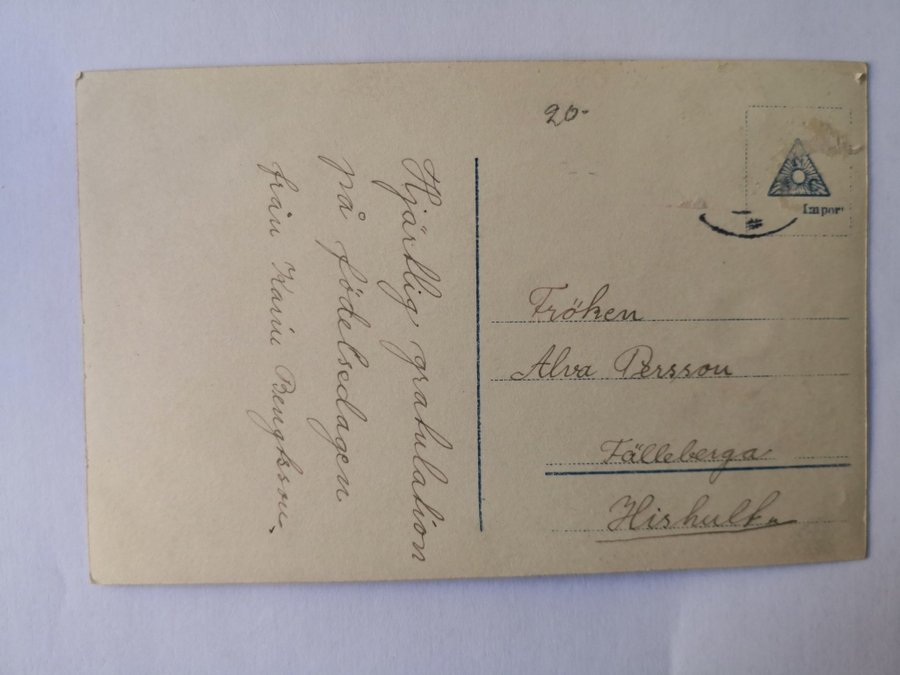 Hjärtlig gratulation
på födelsedagen
från Karin Bengtsson.
20-
N C
Impor
Fröken
Alva Persson
Fälleberga
Hishult